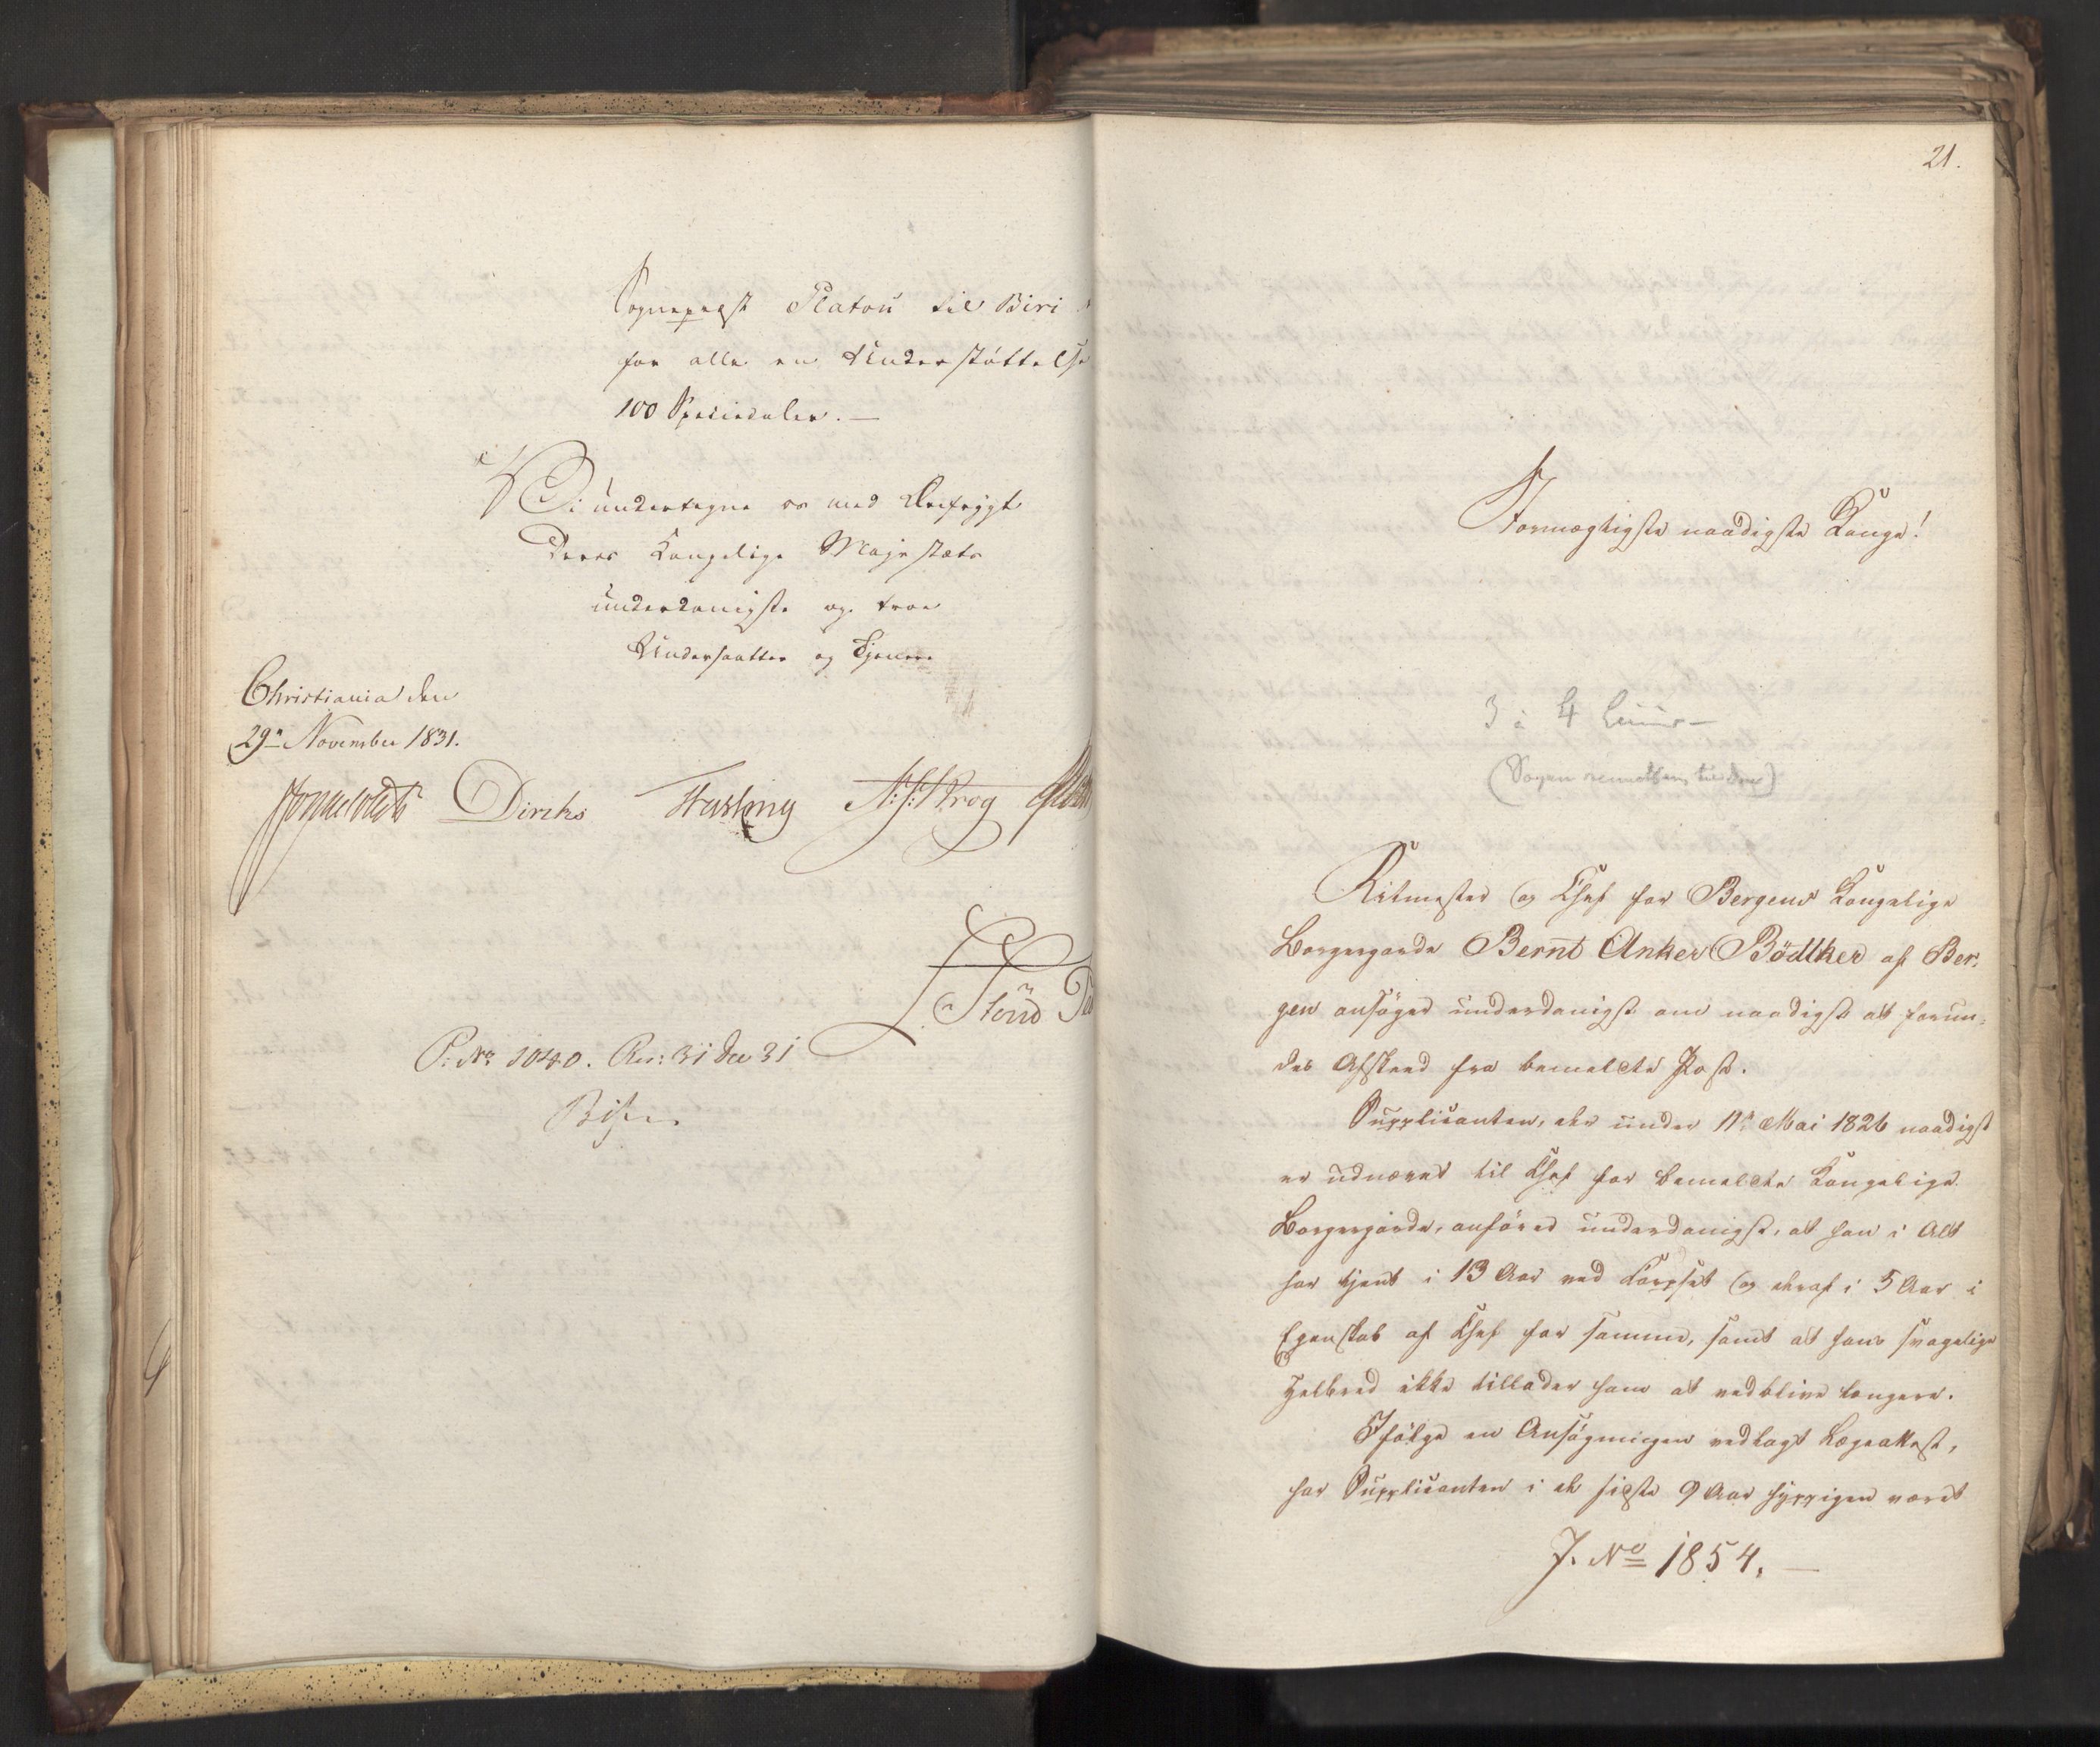 Sogneprest Platou til Biri
for alle en Understøttelse
100 Speciedaler. —
Vi undertegne os med Ærefrygt
Deres Kongelige Majestæts
underdanigste og troe
Undersaatter og Tjenere
Christiania den
29n November 1831.
Diriks Fasting N: J: Krog
P: No 1040. Res: 31 Dec 31
21.
Stormægtigste naadigste Konge!
3 à 4
Ritmester og Chef for Bergens Kongelige
Borgergarde Bernt Anker Bödtker af Ber-
gen ansøger underdanigst om naadigst at forun-
des Afskeed fra bemeldte Post.
Supplicanten, der under 11te Mai 1826 naadigst
er udnævnt til Chef for bemeldte Kongelige
Borgergarde, anfører underdanigst, at han i Alt
har tjent i 13 Aar ved Corpset og deraf i 5 Aar i
Egenskab af Chef for samme, samt at hans svagelige
Helbred ikke tillader ham at vedblive længere.
Ifølge en Ansøgningen vedlagt Lægeattest,
har Supplicanten i de sidste 9 Aar hyppigen været
J. No 1854. —